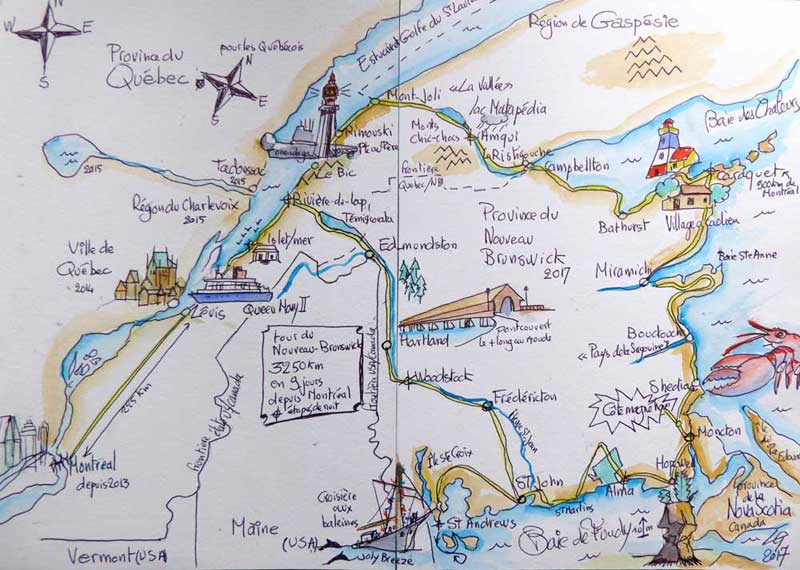 N
W
E
S
Province du
Québec
pour les Québécois
N
W
E
S
Estuaire Golfe du St Laurent
Région de Gaspésie
Mont-Joli
«La Vallée»
lac Matapédia
Monts
chic-chocs
Amqui
Ristigouche
Baie des Chaleurs
Rimouski
Le Bic
frontière
Québec/NB
Campbellton
Caraquet
800km de
Montréal
2015
Tadoussac
2015
Région du Charlevoix
2015
Rivière-du-loup
Témiscouata
Province du
Nouveau
Brunswick
2017
Bathurst
Village acadien
Ville de
Québec
2014
Islet/mer
Edmundston
Miramichi
Baie Ste Anne
Lévis
Queen Mary II
Hartland
pont couvert
le + long au monde
Bouctouche
«Pays de la Sagouine»
tour du
Nouveau-Brunswick
3250km
en 9 jours
depuis Montréal
étapes de nuit
frontière USA/Canada
225 Km
Woodstock
Frédéricton
Shediac
Côte magnétique
Moncton
frontière USA/Canada
Montréal
depuis 2013
Île Ste Croix
St John
St Martins
Alma
Hopewell
Province
de la
Nova Scotia
Canada
Croisière
aux
baleines
Maine
(USA)
Joly Breeze
St Andrews
Baie de Fundy
Vermont (USA)
2017